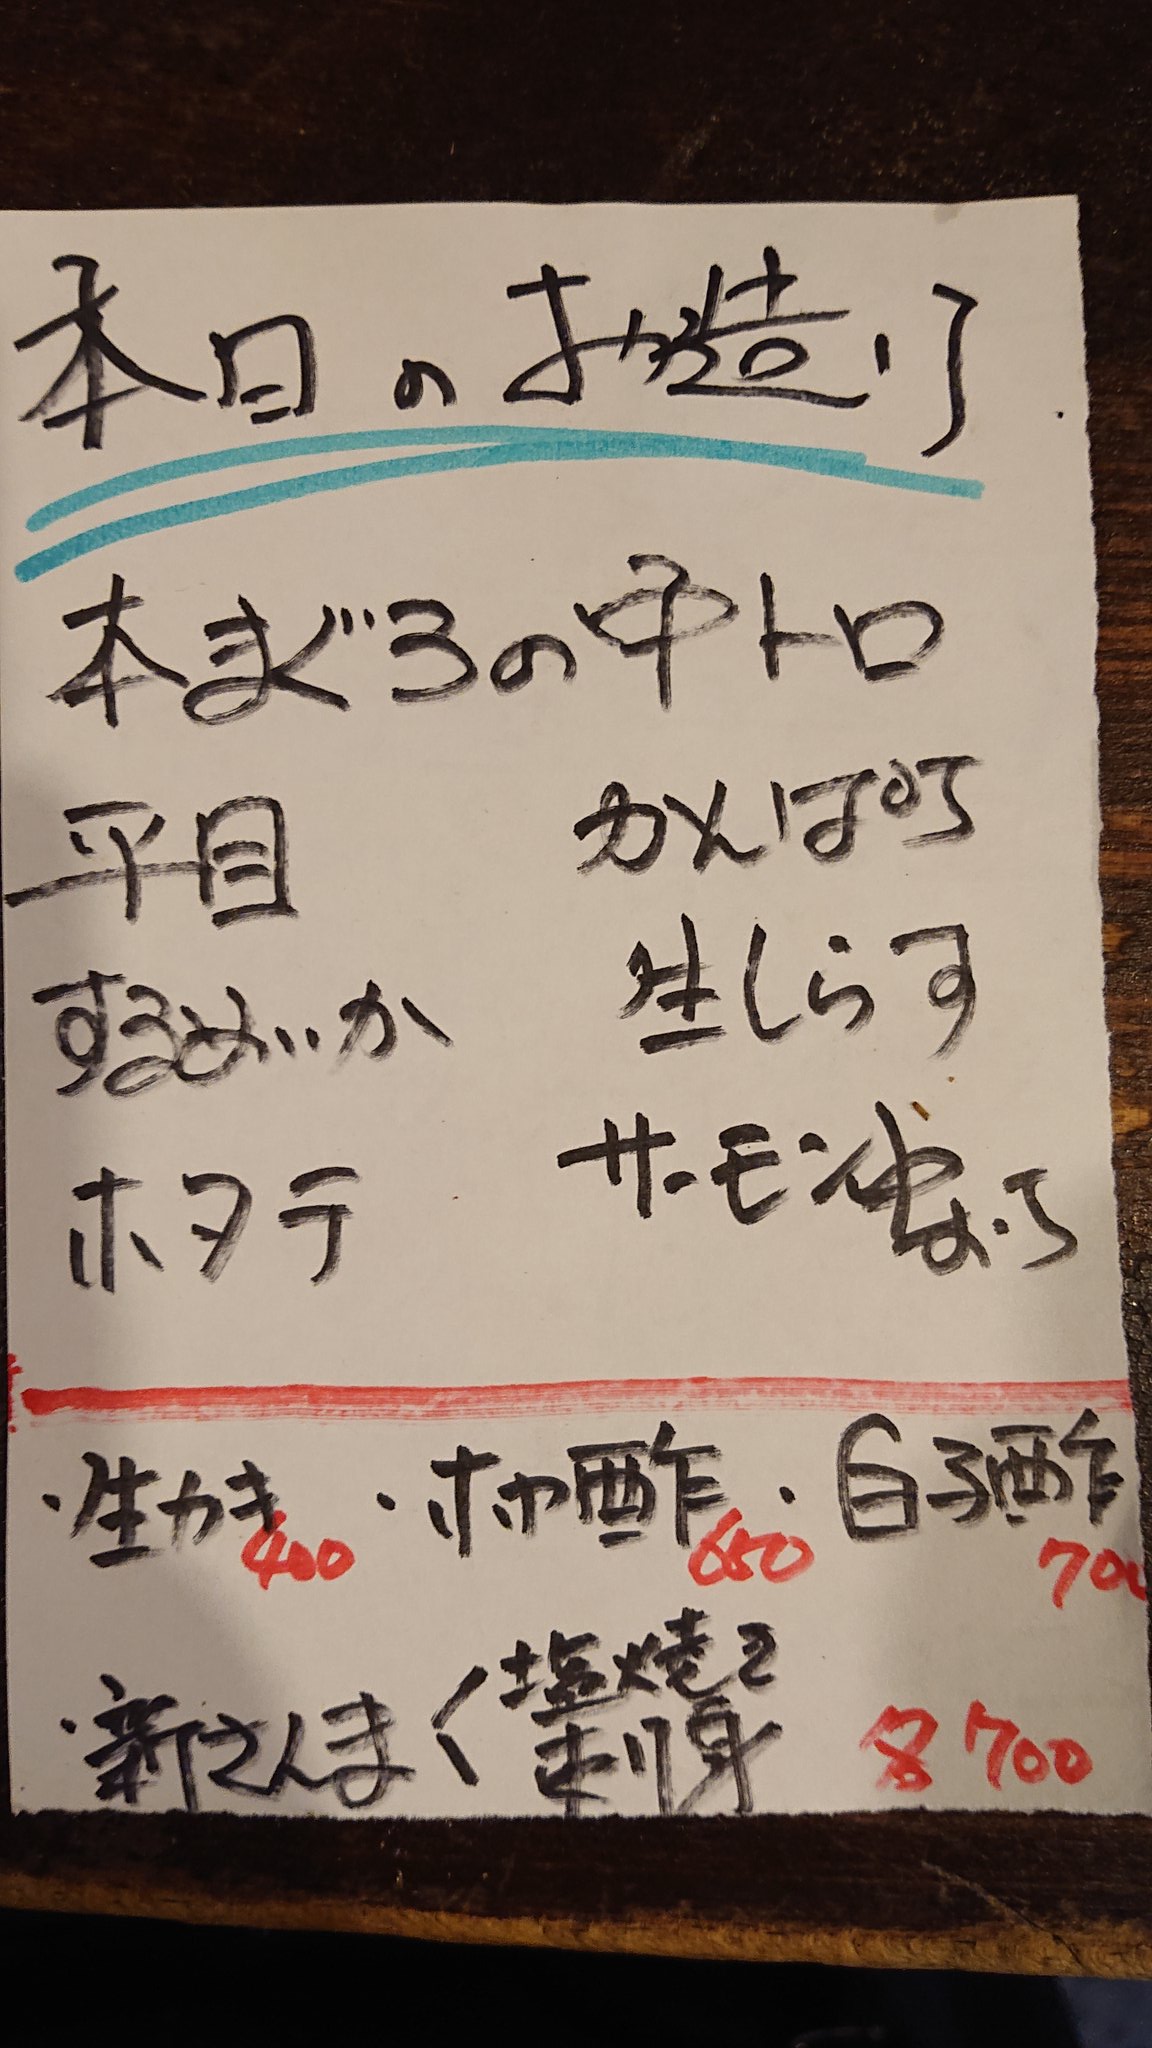 本日のお造り
本まぐろの中トロ
平目 かんぱち
するめいか 生しらす
ホタテ サーモン
・生カキ ・ホヤ酢 ・白子酢
400 650 700
・新さんま く 塩焼き
刺身 700